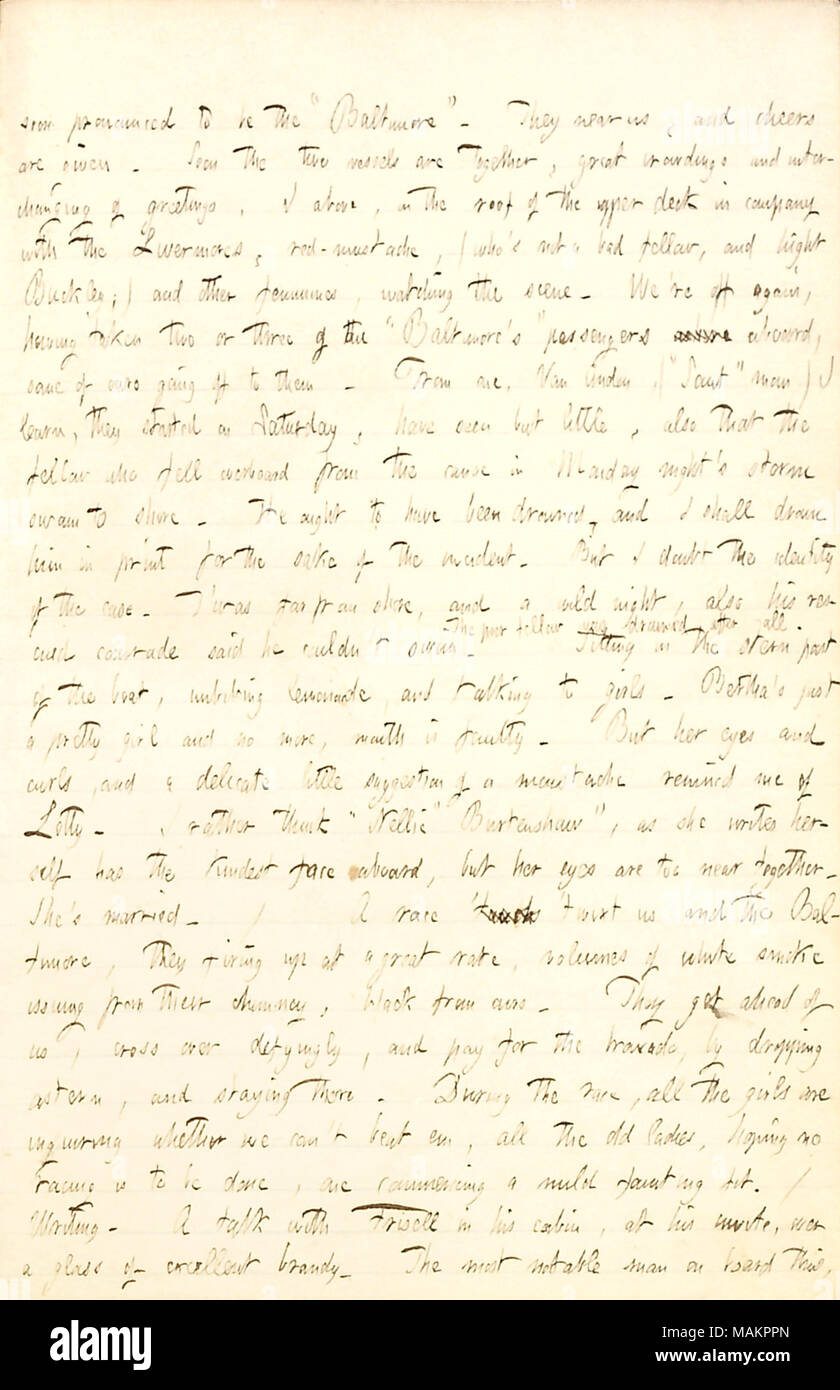 soon pronounced to be the "Baltimore". They near us, and cheers
are given. Soon the two vessels are together, great crowdings and inter-
changing of greetings, I above, on the roof of the upper deck in company
with the Livermores, red-mustache, (who's not a bad fellow, and hight
Buckley,) and other femmines, watching the scene. We're off again,
having taken two or three of the "Baltimore's" passengers aboard,
some of ours going off to them. From one, Van Linden, ("Scout" man) I
learn, they started on Saturday, have seen but little, also that the
fellow who fell overboard from the canoe in Monday night's storm
swam to shore. He ought to have been drowned, and I shall drown
him in print for the sake of the incident. But I doubt the identity
of the case. 'Twas far from shore, and a wild night, also his res-
cued comrade said he couldn't swim. The poor fellow was drowned after all. Sitting in the stern part
of the boat, imbibing lemonade, and talking to girls. Bertha's just
a pretty girl and no more, mouth is faulty. But her eyes and
curls, and a delicate little suggestion of a moustache remind me of
Lotty. I rather think "Nellie" Burtenshaw", as she writes her-
self has the kindest face aboard, but her eyes are too near together.
She's married. / A race 'twixt us and the Bal-
timore, they firing up at a great rate, volumes of white smoke
issuing from their chimney, black from ours. They get ahead of
us, cross over defyingly, and pay for the bravado, by dropping
astern, and staying there. During the race, all the girls are
inquiring whether we can't beat em, all the old ladies, hoping no
racing is to be done, are commencing a mild fainting fit. /
Writing. A talk with Frisell in his cabin, at his invite, over
a glass of excellent brandy. The most notable man on board this,
alamy
Image ID: MAKPPN
www.alamy.com